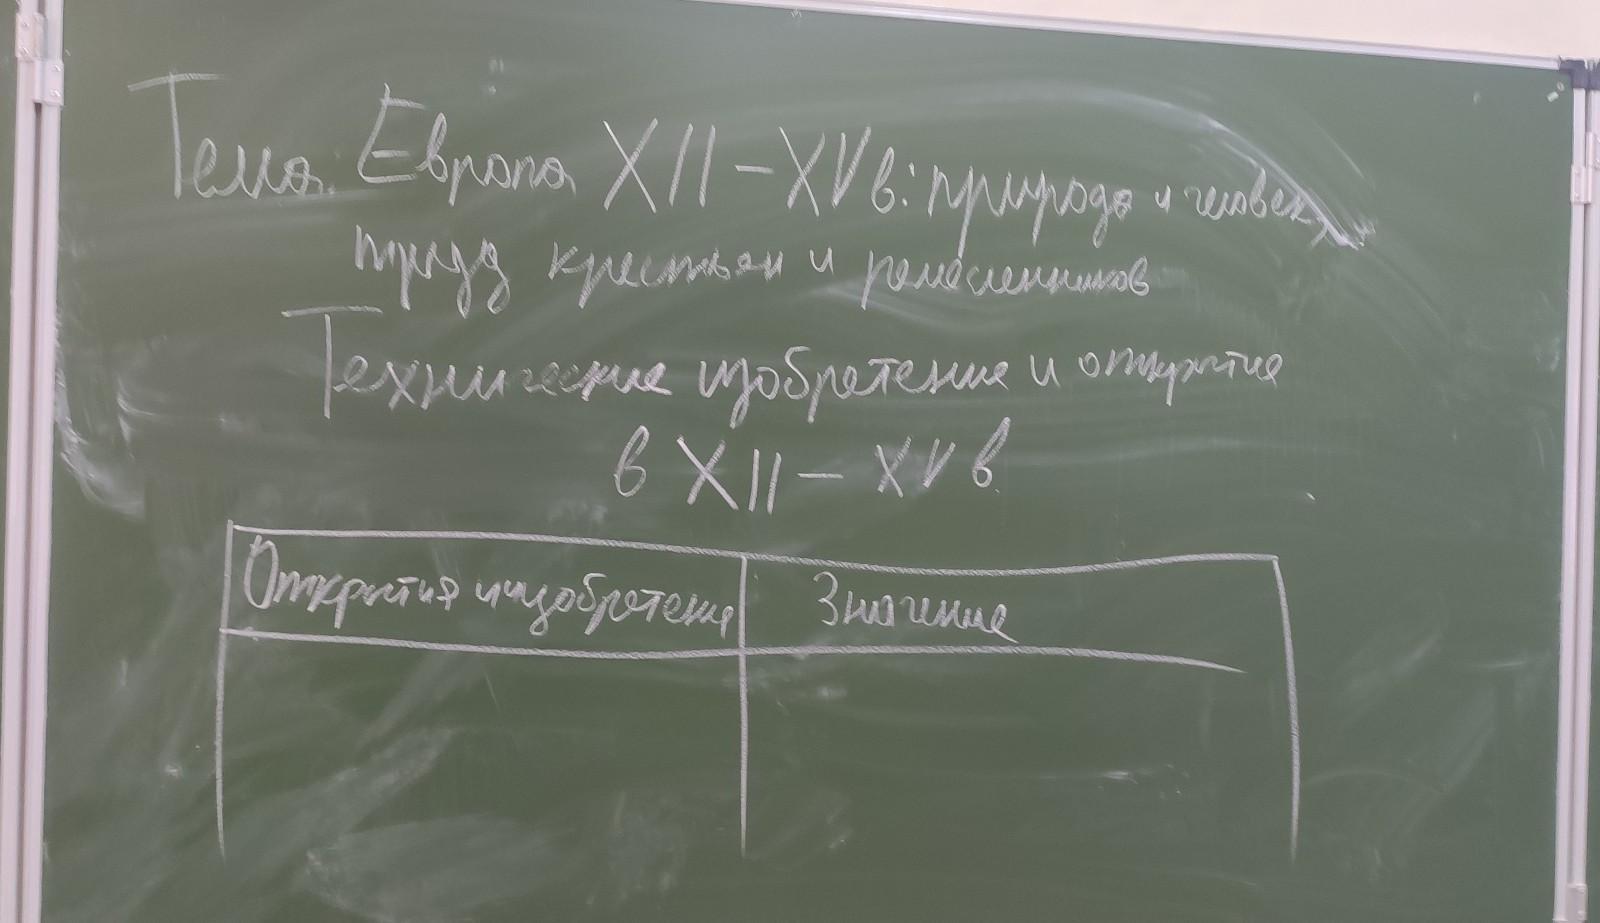 Тема. Европа XII – XV в: природа и человек,
труд крестьян и ремесленников
Технические изобретение и открытие
в XII – XV в
Открытия и изобретени
Значение